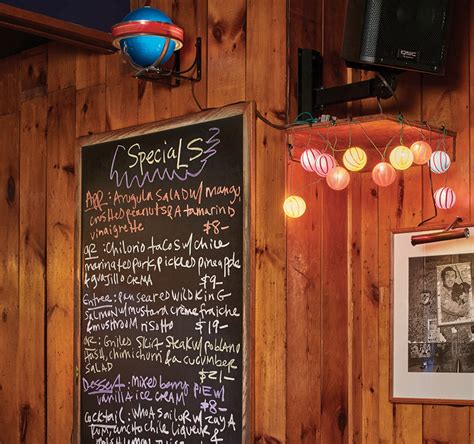 SpeciaLS
APP: Arugula SALAD w/ mango,
crushed peanuts & A tamarind
vinaigrette $8-
OR: Chilorio tacos w/ chile
marinated pork, pickled pineapple
& aguajillo crema $9-
Entree: pan seared wild KING
SALMON w/ mustard crème fraiche
& mushroom risotto $19-
OR: Grilled Skirt Steak w/ poblano
chimichurri & a cucumber
SALAD $21-
Dessert: mixed berry PIE w/
vanilla ice cream $8-
cocktail: WhoA sailor w/ zaya
rum, ancho chile liqueur
QSC